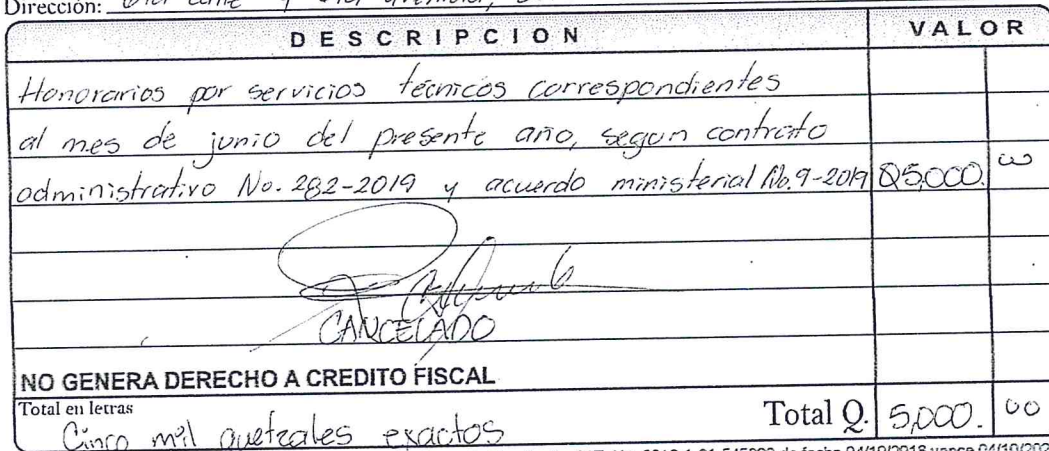 Dirección:
DESCRIPCION VALOR
Honorarios por servicios técnicos correspondientes
al mes de junio del presente año, segun contrato
administrativo No. 282-2019 y acuerdo ministerial No. 9-2019 Q5,000. 00
CANCELADO
NO GENERA DERECHO A CREDITO FISCAL
Total en letras
Cinco mil quetzales exactos Total Q. 5,000. 00
de fecha 04/10/2018 vence